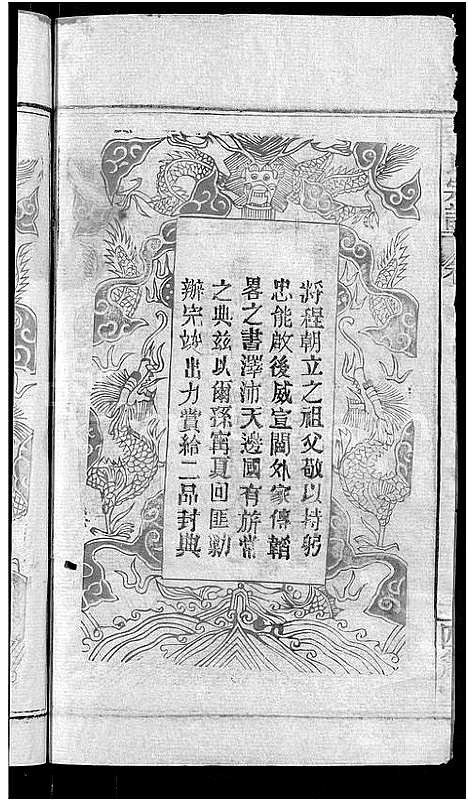 將程朝立之祖父敬以持躬
忠能啟後威宣閫外家傳韜
畧之書澤沛天邊國有旂常
之典茲以爾孫甯夏回匪勦
辦完竣出力賞給二品封典